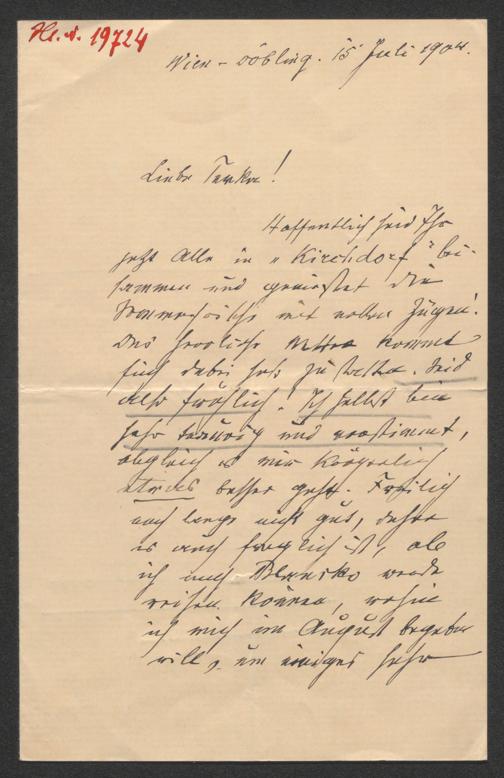 Hs. N. 19724
Wien – Döbling. 15 Juli 1904.
Liebe Tanka!
Hoffentlich seid Ihr
jetzt Alle in „Kirchdorf" bei-
sammen und genießet die
Sommerfrische mit vollen Zügen.
Das herrliche Wetter kommt
Euch dabei sehr zu statten. Seid
also fröhlich! Ich selbst bin
sehr traurig und verstimmt,
obgleich es mir körperlich
etwas besser geht. Freilich
noch lange nicht gut, daher
es auch fraglich ist, ob
ich nach Blansko werde
reisen können, wohin
ich mich im August begeben
will, um einiges sehr